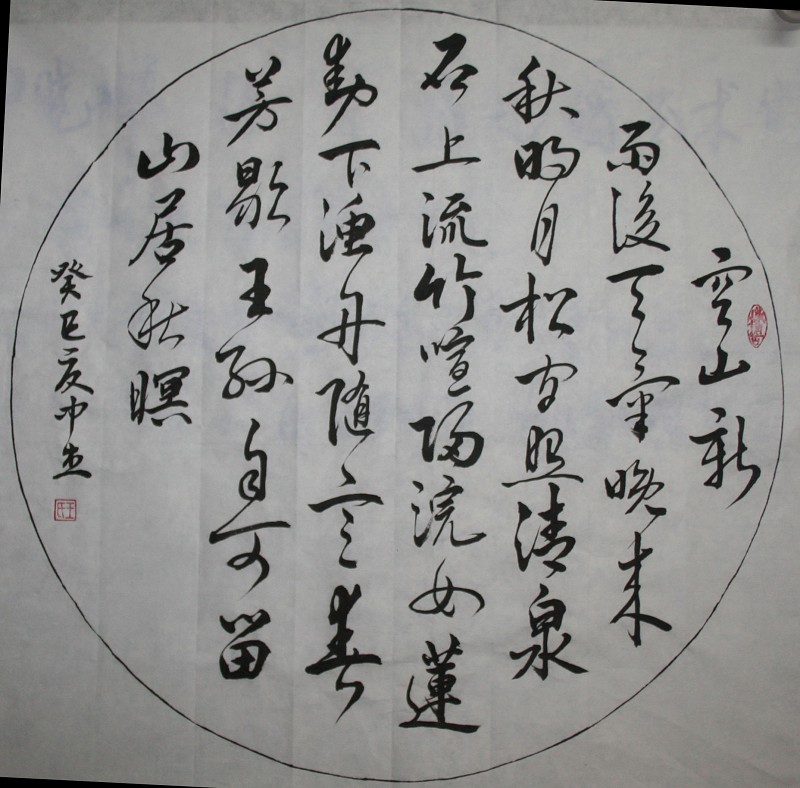 空山新
雨後天氣晚来
秋明月松间照清泉
石上流竹喧歸浣女蓮
動下漁舟随意春
芳歇王孫自可留
山居秋暝
癸巳
王氏